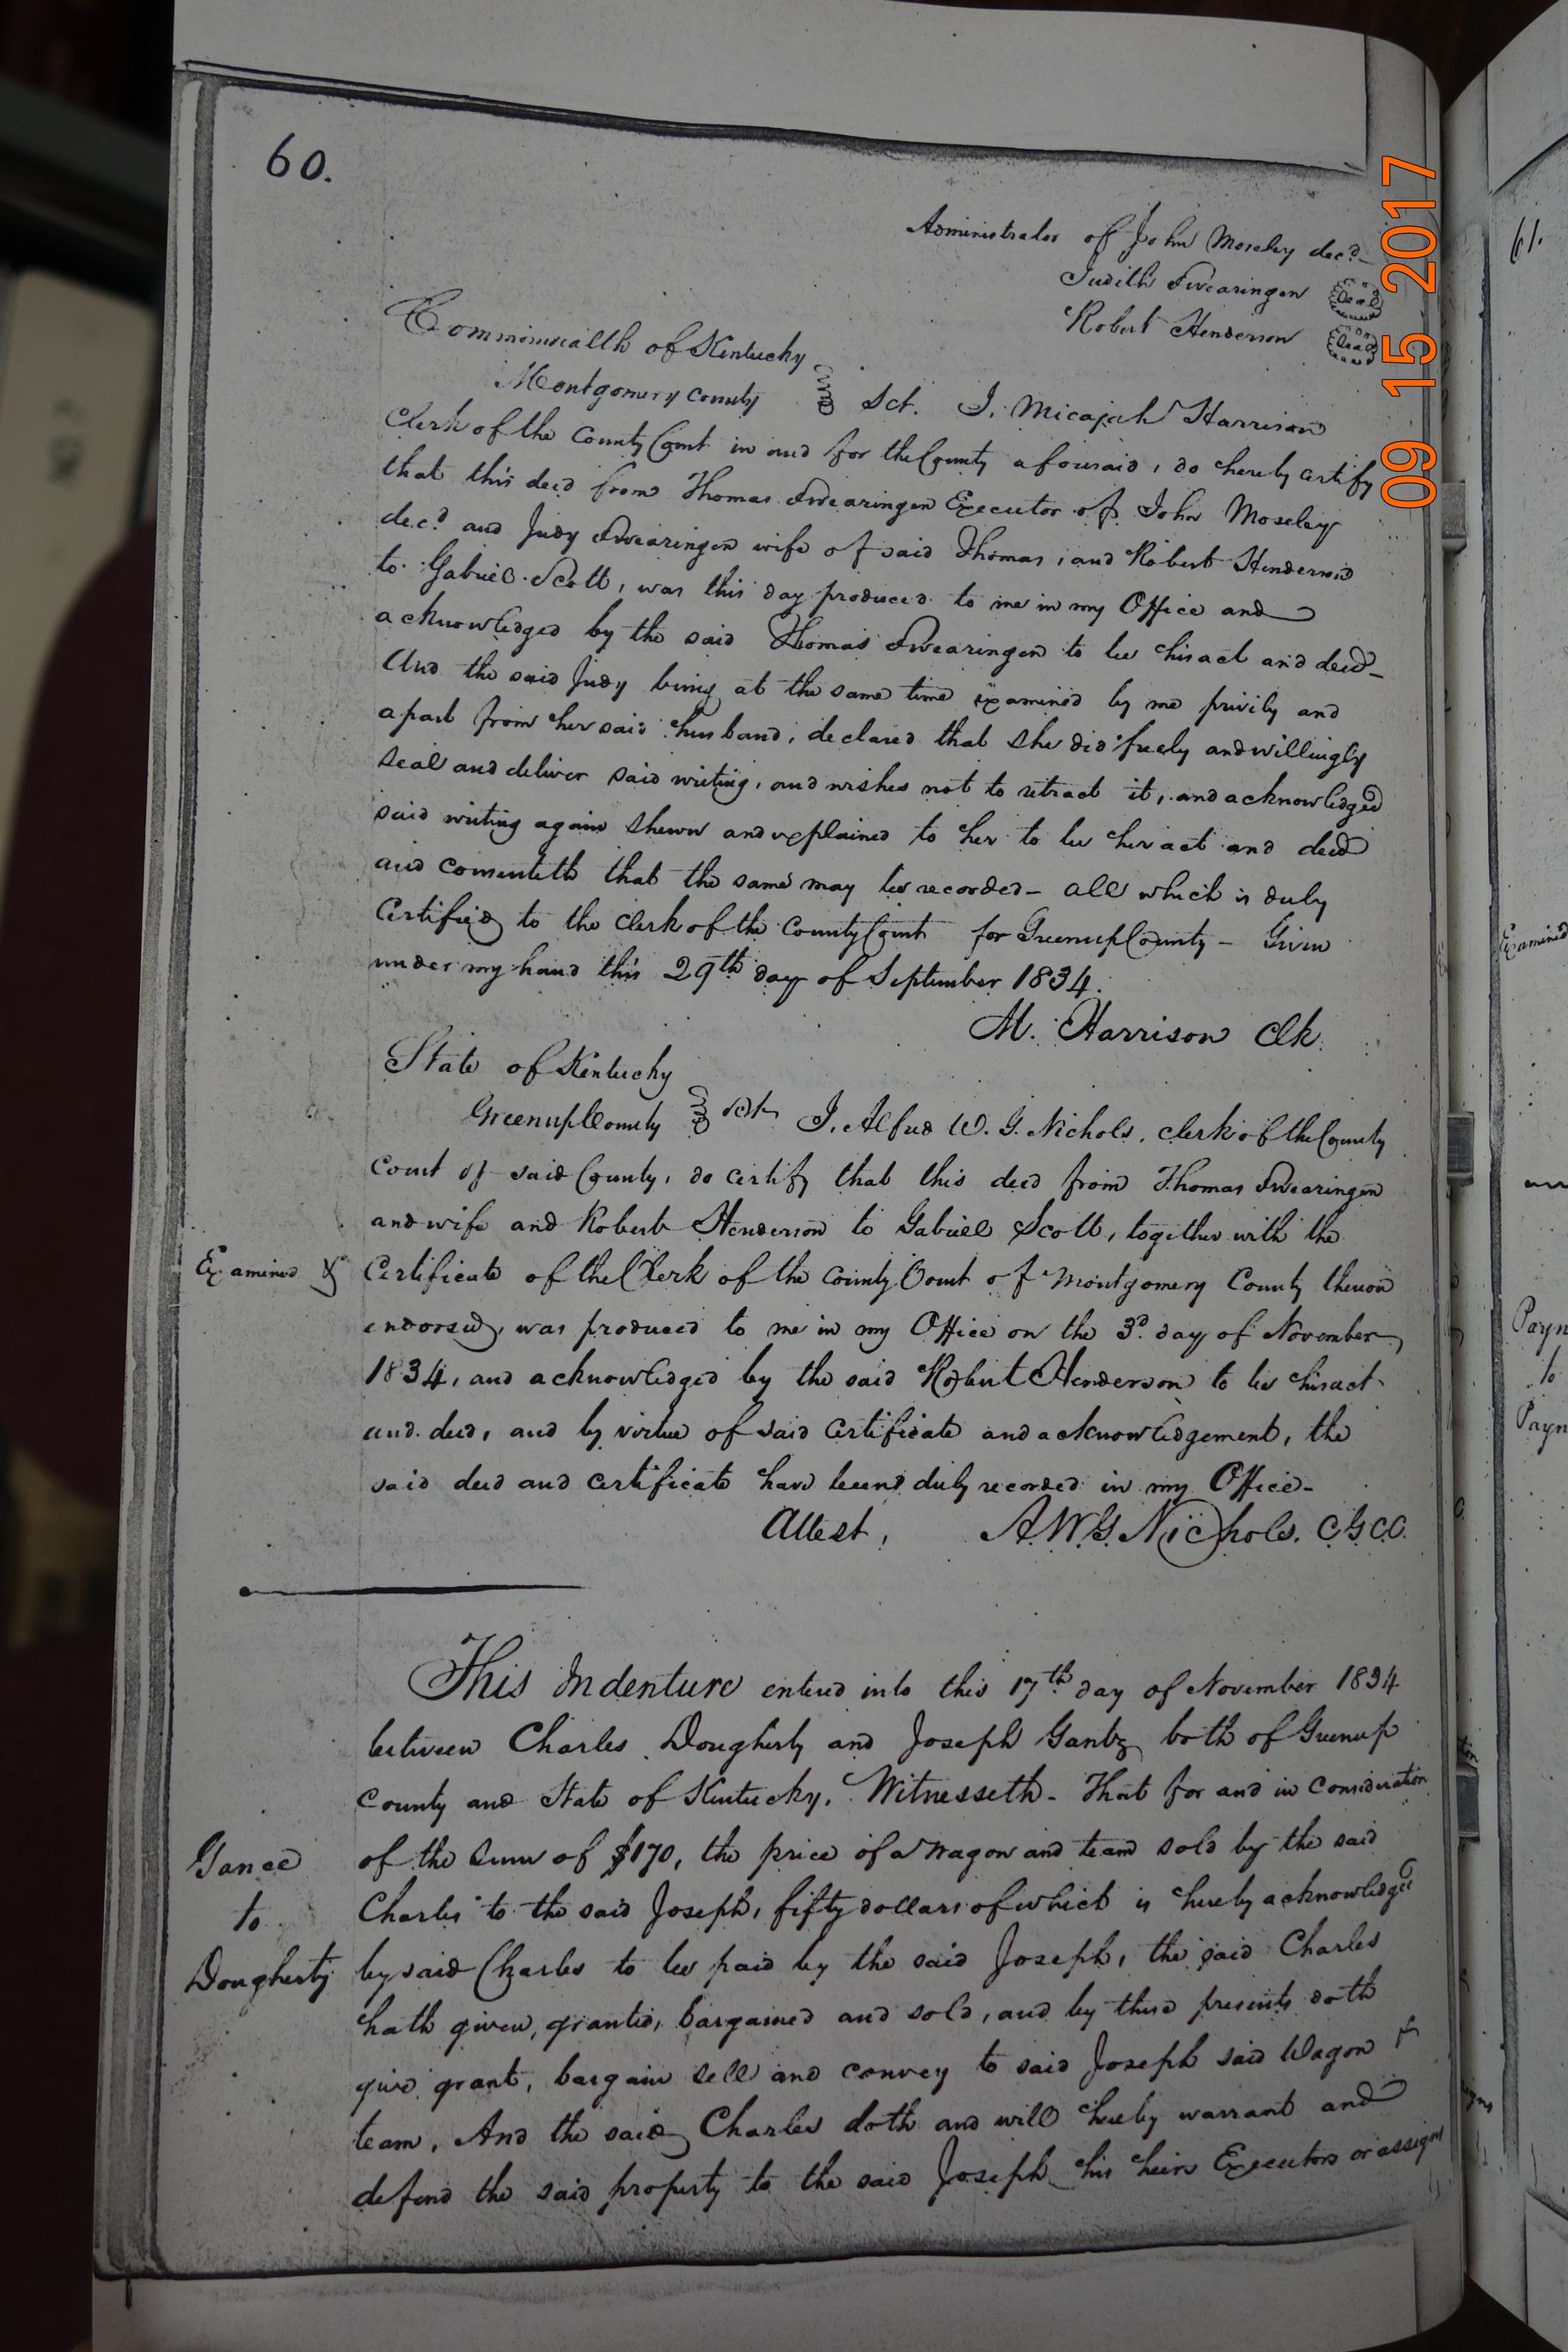 60.
Administrator of John Moseley decd.
Judith Swearingen Seal
Robert Henderson Seal
Commonwealth of Kentucky
Montgomery County Sct. I, Micajah Harrison
Clerk of the County Court in and for the County aforesaid, do hereby certify
that this deed from Thomas Swearingen Executor of John Moseley
decd and Judy Swearingen wife of said Thomas, and Robert Henderson
to Gabriel Scott, was this day produced to me in my Office and
acknowledged by the said Thomas Swearingen to be his act and deed -
And the said Judy being at the same time examined by me privily and
apart from her said husband, declared that she did freely and willingly
seal and deliver said writing, and wishes not to retract it, and acknowledged
said writing again shewn and explained to her to be her act and deed
and consenteth that the same may be recorded - all which is duly
Certified to the Clerk of the County Court for Greenup County - Given
under my hand this 29th day of September 1834.
M. Harrison Clk.
State of Kentucky
Greenup County Sct. I, Alfred W. G. Nichols, clerk of the County
Court of said County, do certify that this deed from Thomas Swearingen
and wife and Robert Henderson to Gabriel Scott, together with the
Examined Certificate of the Clerk of the County Court of Montgomery County thereon
endorsed, was produced to me in my Office on the 3d. day of November
1834, and acknowledged by the said Robert Henderson to be his act
and deed, and by virtue of said certificate and acknowledgement, the
said deed and certificate have been duly recorded in my Office -
Attest, A.W.G. Nichols. C.G.C.C.
This Indenture entered into this 17th day of November 1834
between Charles Dougherty and Joseph Gantz both of Greenup
County and State of Kentucky. Witnesseth - That for and in consideration
of the sum of $170, the price of a wagon and team sold by the said
Charles to the said Joseph, fifty dollars of which is hereby acknowledged
by said Charles to be paid by the said Joseph, the said Charles
hath given, granted, bargained and sold, and by these presents doth
give grant, bargain sell and convey to said Joseph said Wagon &
team, And the said Charles doth and will hereby warrant and
defend the said property to the said Joseph his heirs Executors or assigns
to
Dougherty
09 15 2017
61.
Examined
Payn
to
Payn